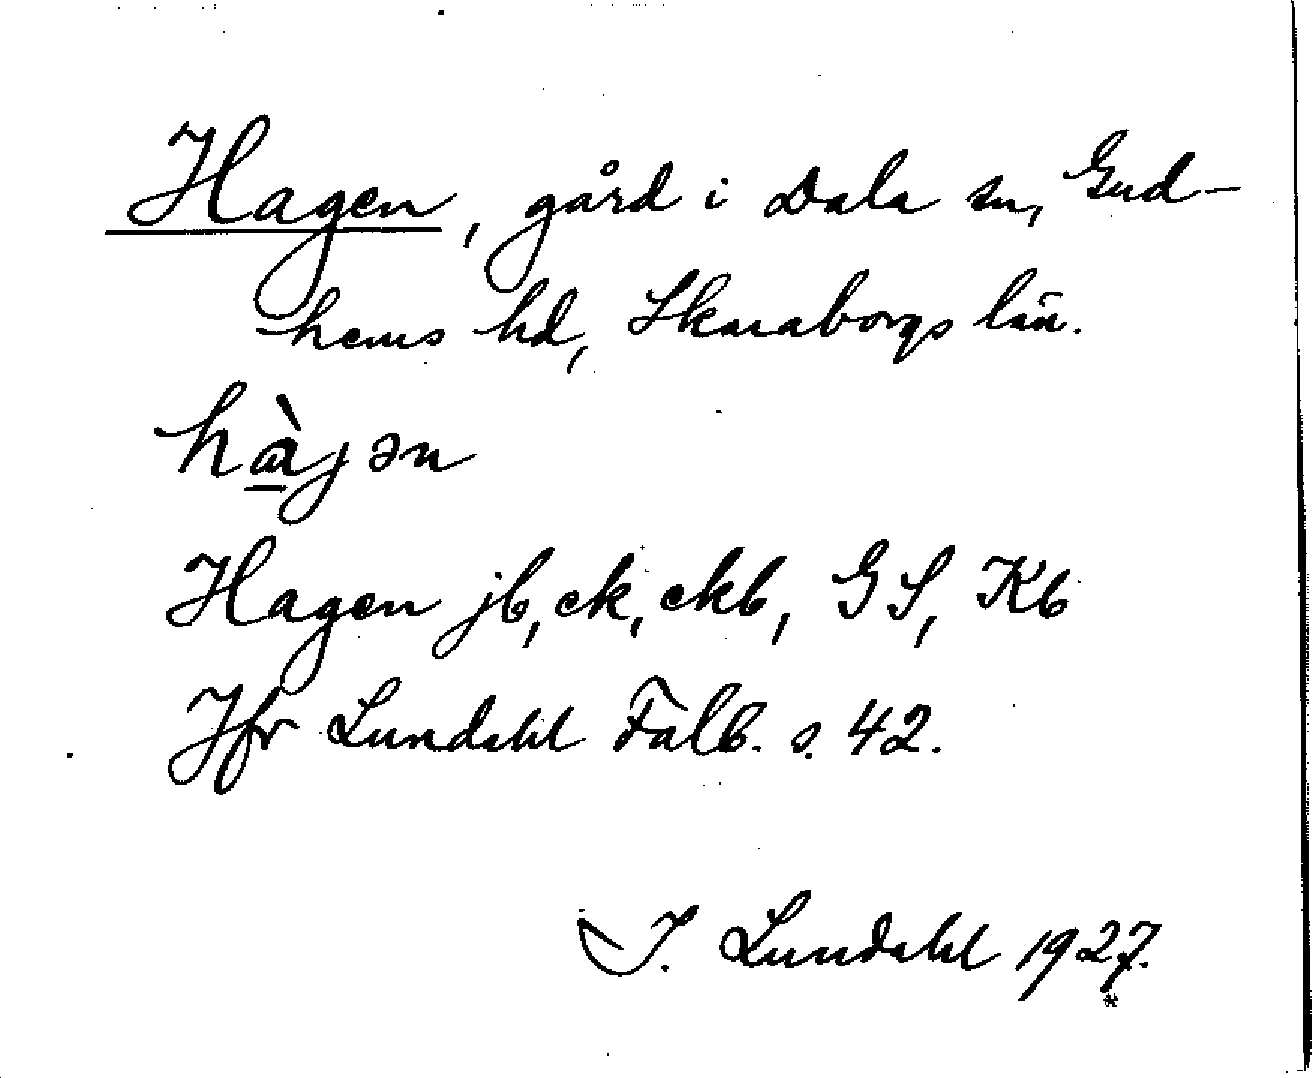 Hagen, gård i Dala sn, Gud-
hems hd, Skaraborgs län.
hàjən
Hagen jb, ek, ekb, GS, Kb
Jfr Lundahl Falb. s. 42.
I. Lundahl 1927.